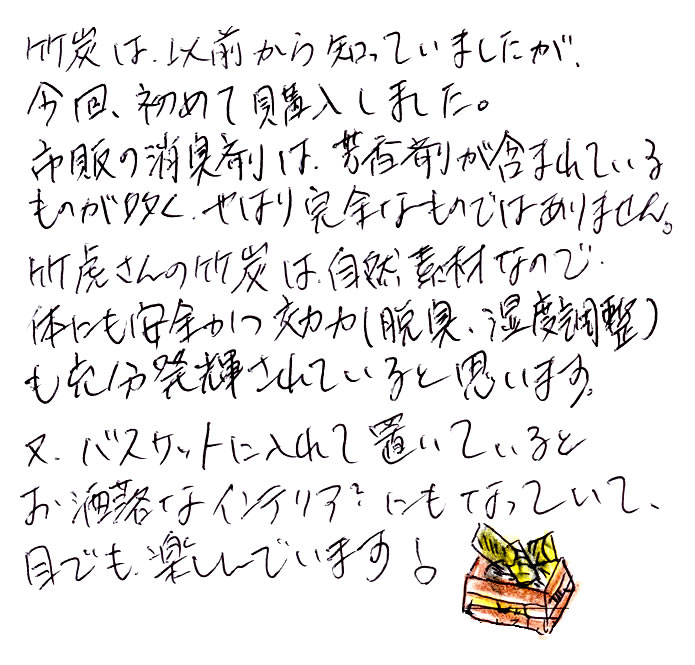 竹炭は、以前から知っていましたが、
今回、初めて購入しました。
市販の消臭剤は、芳香剤が含まれている
ものが多く、やはり完全なものではありません。
竹虎さんの竹炭は、自然素材なので、
体にも安全かつ効力(脱臭、湿度調整)
も充分発揮されていると思います。
又、バスケットに入れて置いていると
お洒落なインテリア?にもなっていて、
目でも楽しんでいます!